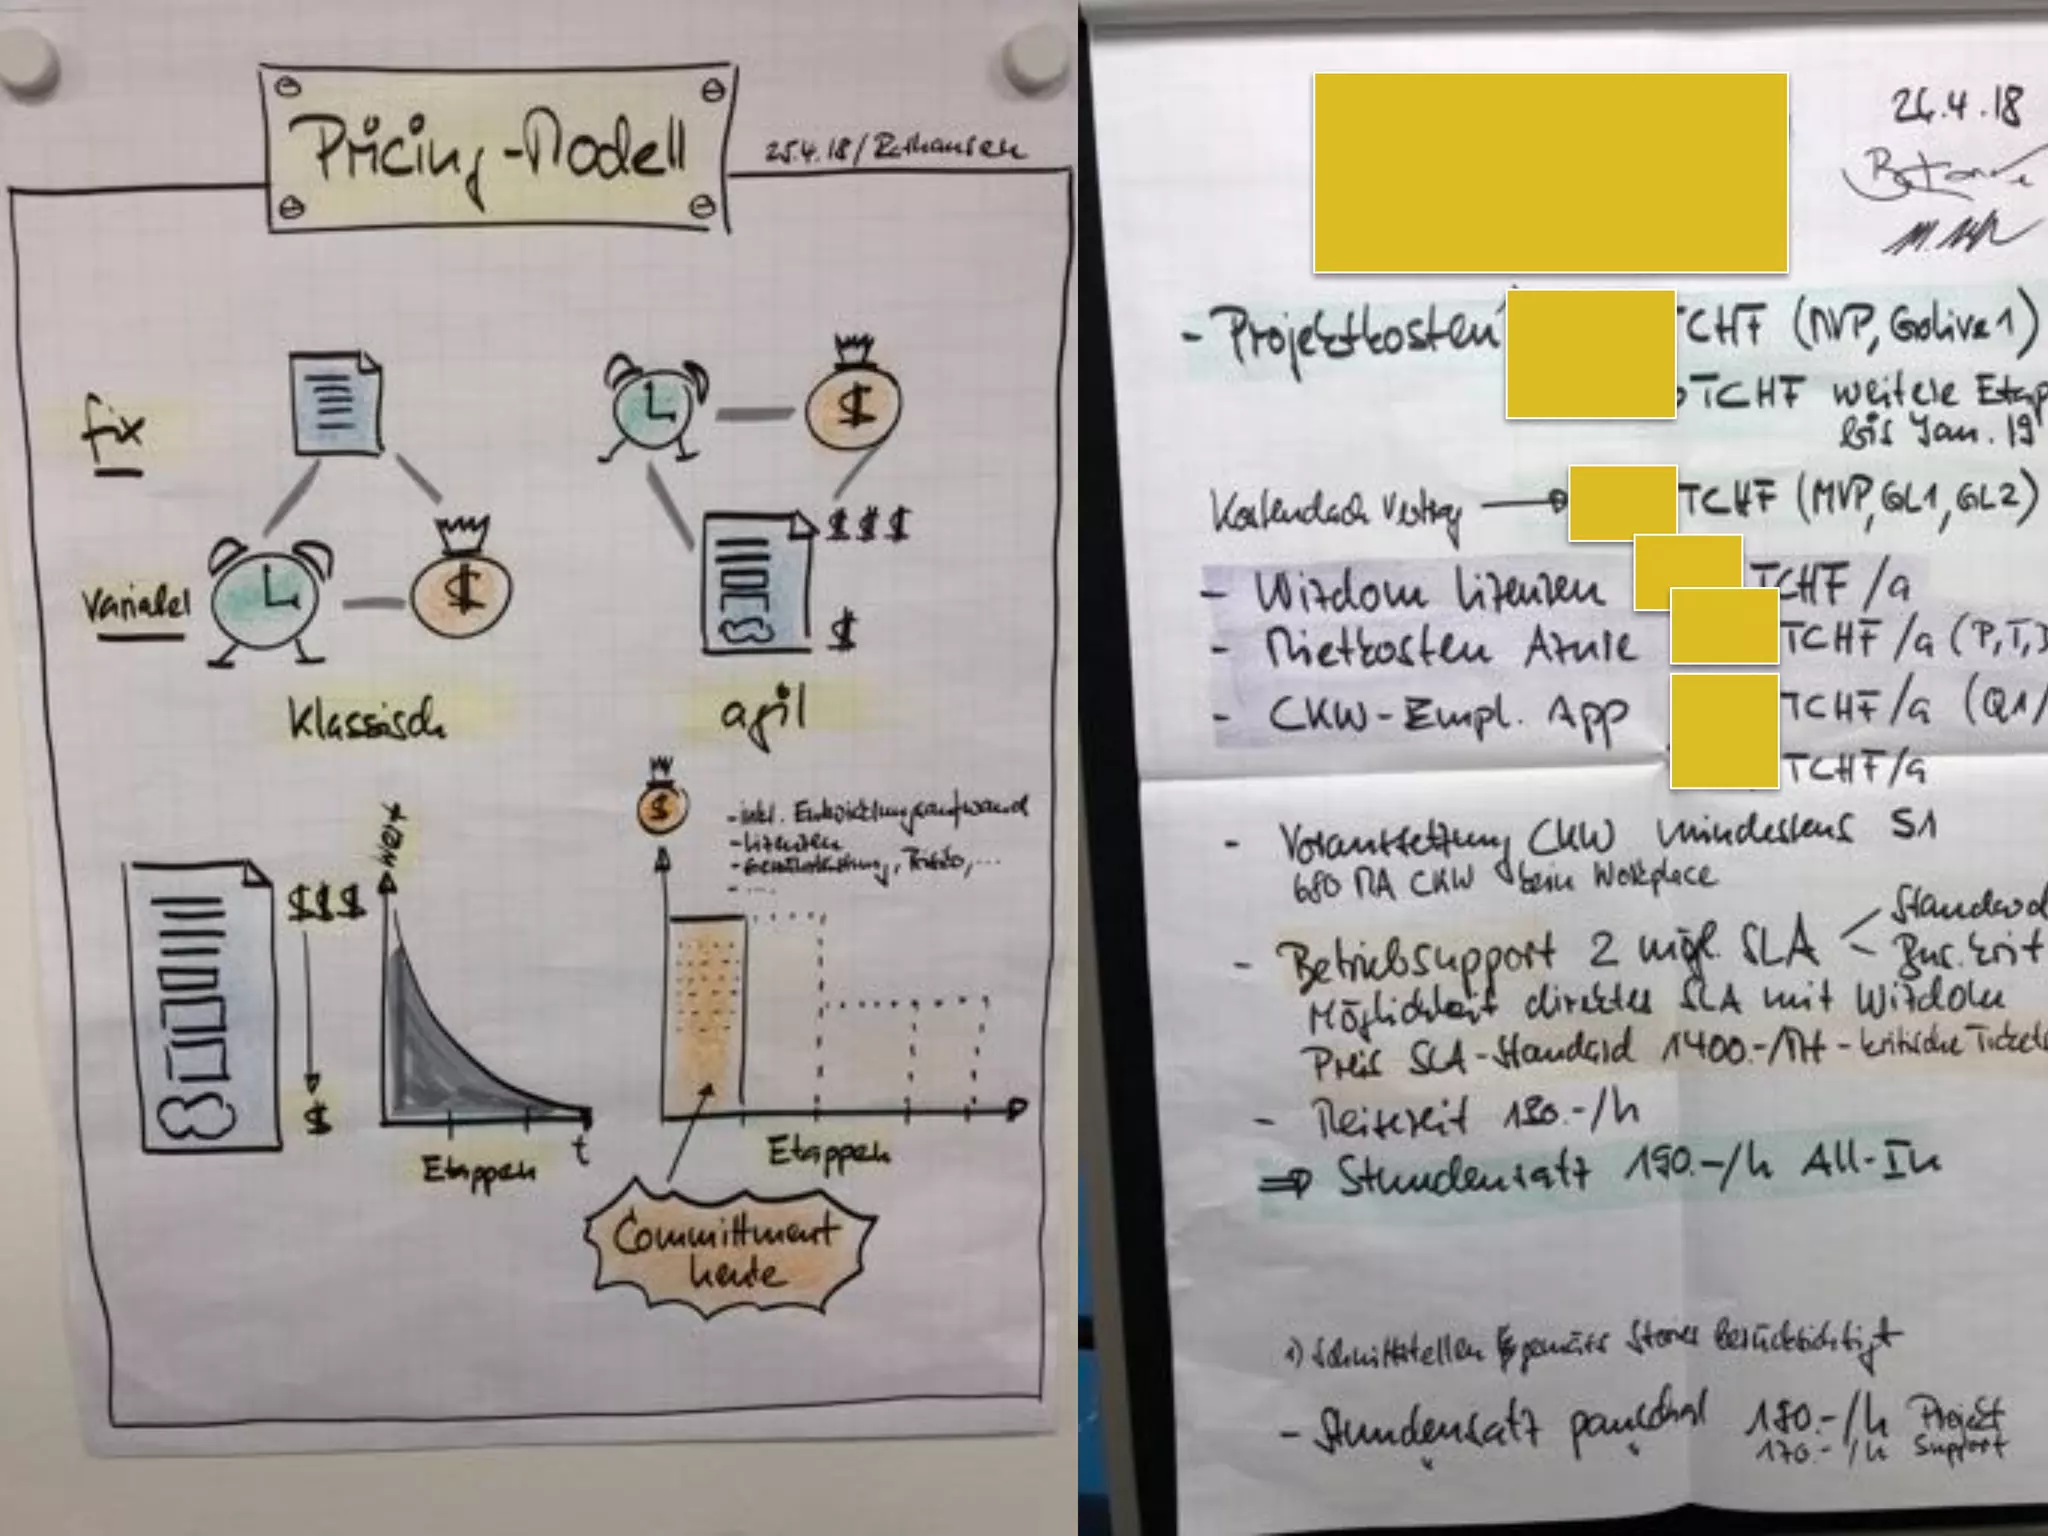 Pricing-Modell
25.4.18/Rathausen
fix
variabel
$
$
$$$
$
klassisch
agil
Wert
$$$
$
Etappen
t
$
- inkl. Entwicklungsaufwand
- Lizenzen
- Gewährleistung, Risiko, ...
- ....
Etappen
Committment
heute
26.4.18
- Projektkosten TCHF (MVP, Golive 1)
TCHF weitere Etap
bis Jan. 19
Kostendach Vertrag TCHF (MVP, GL1, GL2)
- Wizdom Lizenzen TCHF /a
- Mietkosten Azure TCHF /a (P, T,
- CKW-Empl. App TCHF/a (Q1/
TCHF/a
- Voraussetzung CKW mindestens S1
680 MA CKW beim Workplace
- Betriebsupport 2 mögl. SLA
Standard
Bus. krit
Möglichkeit direktes SLA mit Wizdom
Preis SLA-Standard 1400.-/Mt - kritische Tickets
- Reisezeit 130.-/h
⇒ Stundensatz 190.-/h All-In
1) Schnittstellen gemäss Stories berücksichtigt
- Stundensatz pauschal 180.-/h Projekt
170.-/h Support